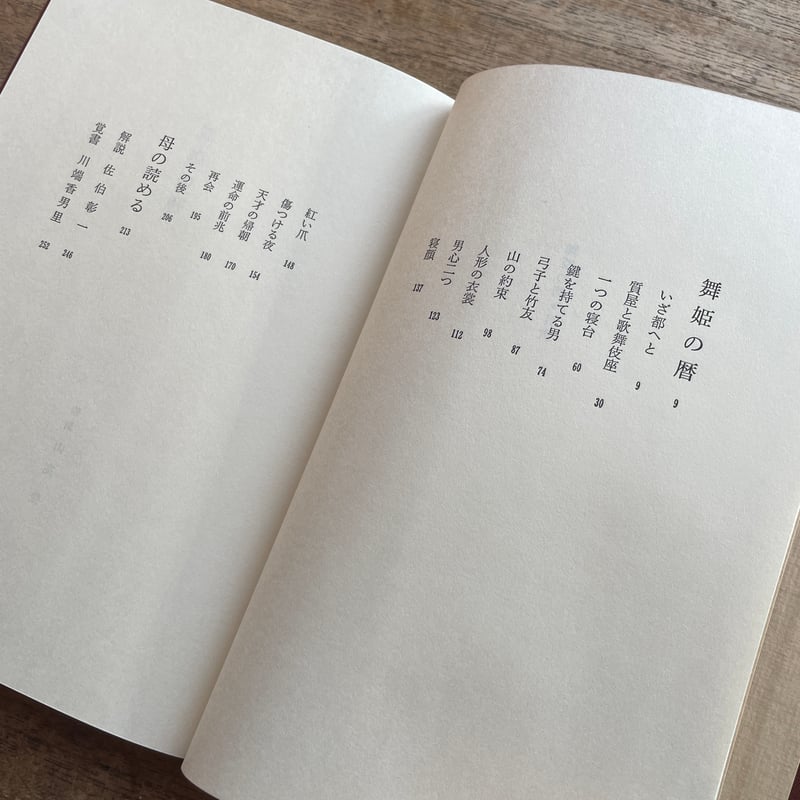 舞姫の暦 9
いざ都へと 9
質屋と歌舞伎座 30
一つの寝台 60
鍵を持てる男 74
弓子と竹友 87
山の約束 98
人形の衣裳 112
男心二つ 123
寝顔 137
紅い爪 148
傷つける夜 154
天才の帰朝 170
運命の前兆 180
再会 195
その後 206
母の読める 213
解説 佐伯彰一 246
覚書 川端香男里 252